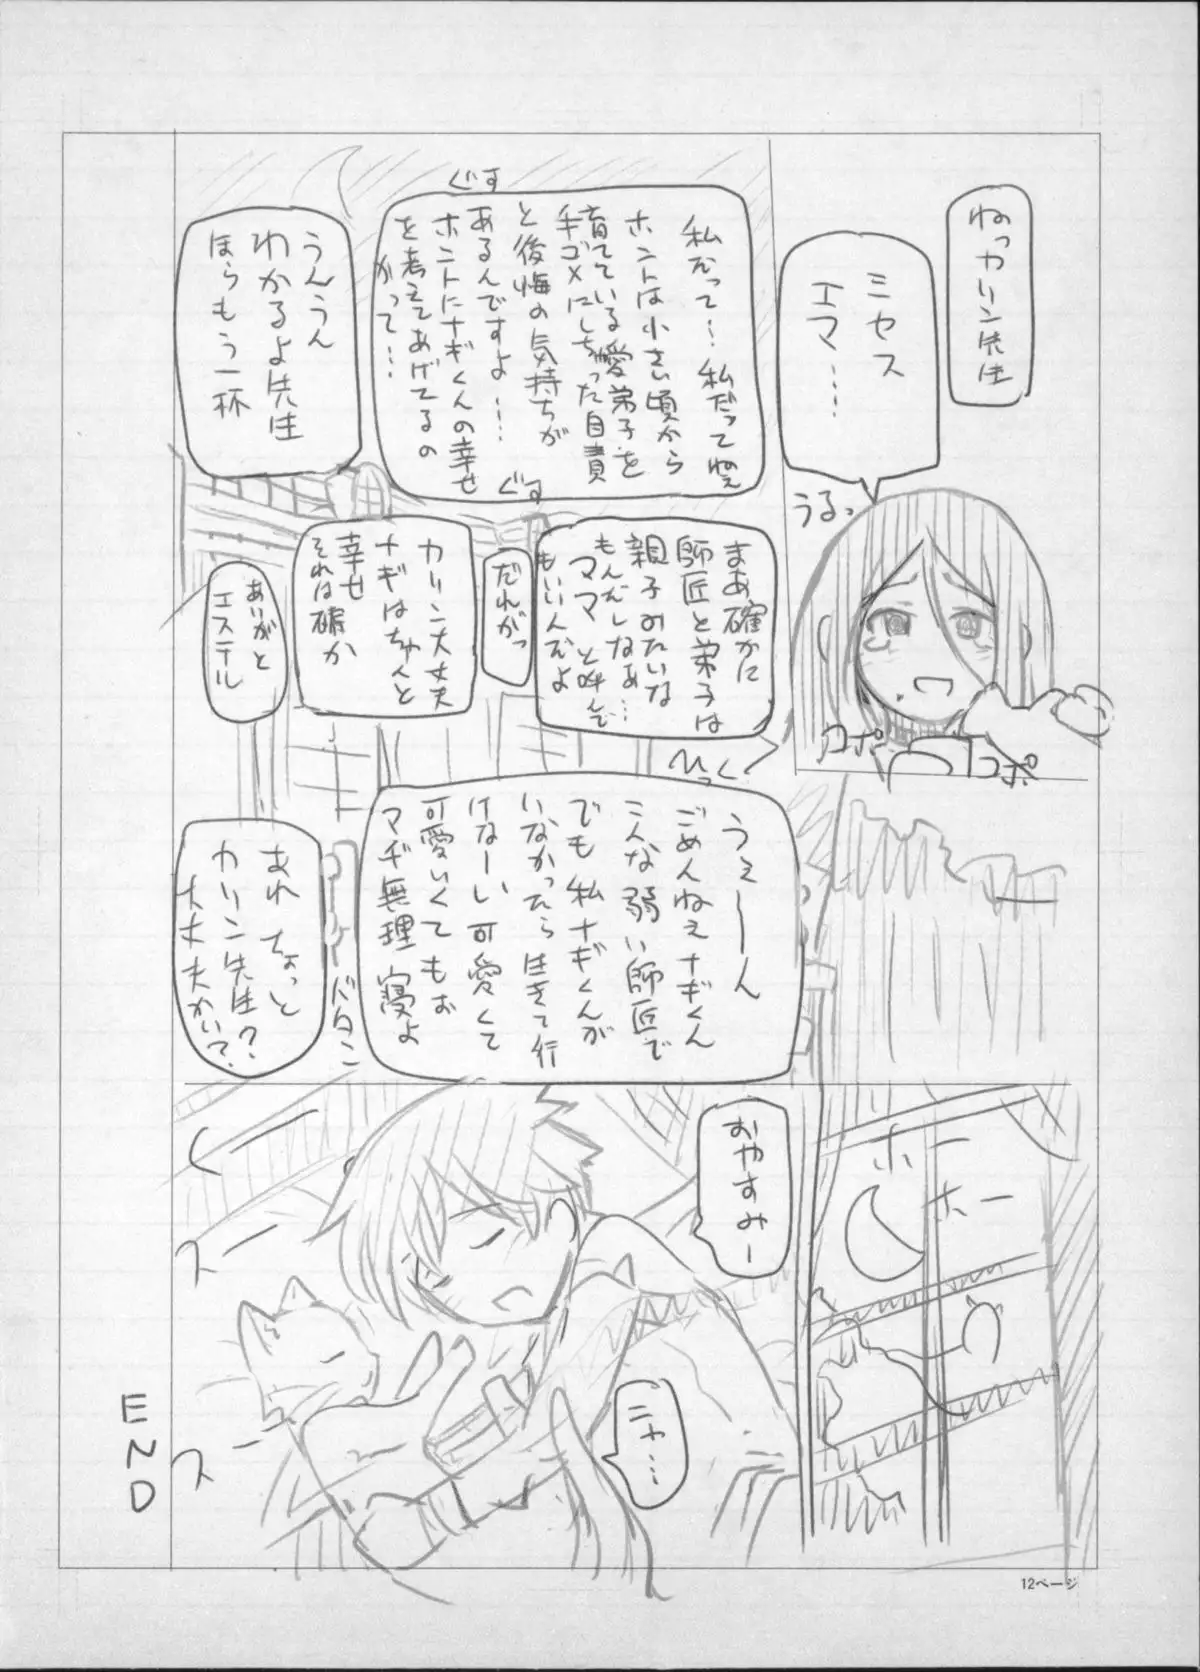 ねっカリン先生
ミセス
エマ……
うるっ
コポ
コポ
私だって…私だってねぇ
ホントは小さい頃から
育てている愛弟子を
手ゴメにしちゃった自責
と後悔の気持ちが
あるんですよ……
ホントにナギくんの幸せ
を考えてあげてるの
かって…
ぐす
ぐす
うんうん
わかるよ先生
ほらもう一杯
まあ確かに
師匠と弟子は
親子みたいな
もんだしなぁ…
ママと呼んで
もいいんだよ
だれがっ
カリン大丈夫
ナギはちゃんと
幸せ
それは確か
あいがと
エステル
ひっく
うぇーーん
ごめんねぇナギくん
こんな弱い師匠で
でも私ナギくんが
いなかったら生きて行
けなーい可愛くて
可愛いくてもぉ
マヂ無理 寝よ
あれ ちょっと
カリン先生?
大丈夫かい?
バタン
ホー
ホー
おやすみー
ニャ…
くー
スー
スー
END
12ページ